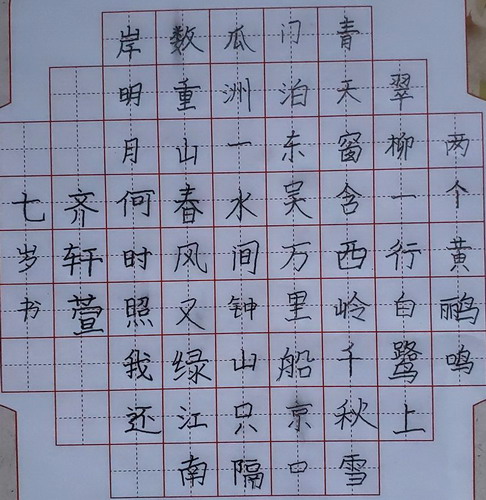 两个黄鹂鸣
翠柳一行白鹭上
青天窗含西岭千秋雪
门泊东吴万里船京口
瓜洲一水间钟山只隔
数重山春风又绿江南
岸明月何时照我还
齐轩萱
七岁书